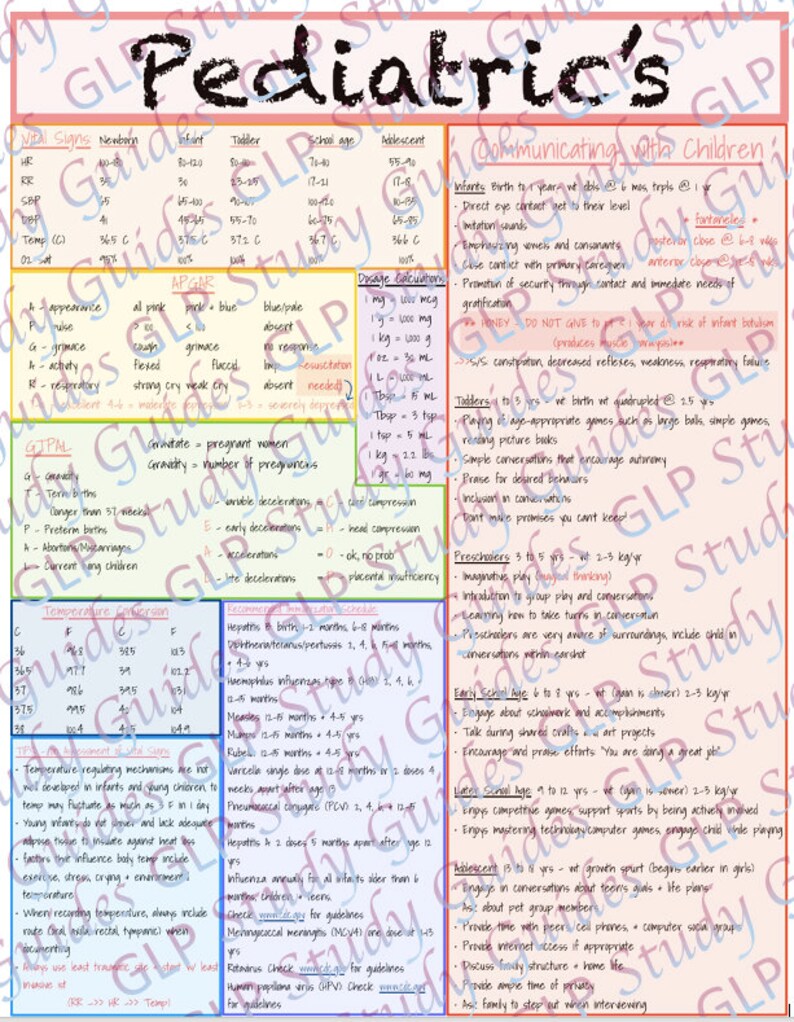 Pediatric's
Vital Signs Newborn Infant Toddler School age Adolescent
HR 100-180 80-120 70-110 55-90
RR 35 30 23-25 17-21 17-18
SBP 65-100 100-120 110-135
DBP 41 45-65 55-70 60-75 65-85
Temp (C) 36.5 C 37.5 C 37.2 C 36.7 C 36.6 C
O2 sat 95% 100% 100% 100% 100%
APGAR
A - appearance all pink pink + blue blue/pale
P - pulse > 100 < 100 absent
G - grimace cough grimace no response
A - activity flexed flaccid limp
R - respiratory strong cry weak cry absent
Resuscitation
needed)
4-6 = moderate 1-3 = severely depressed
Dosage Calculations
1 mg = 1,000 mcg
1 g = 1,000 mg
1 kg = 1,000 g
1 oz = 30 mL
1 L = 1,000 mL
1 Tbsp = 15 mL
Tbsp = 3 tsp
1 tsp = 5 mL
1 kg = 2.2 lbs
1 gr = 60 mg
GTPAL
Gravitate = pregnant women
Gravidity = number of pregnancies
G - Gravidity
T - Term births
(longer than 37 weeks)
P - Preterm births
A - Abortions/Miscarriages
L - Current living children
- variable decelerations = C - cord compression
E - early decelerations = H - head compression
A - accelerations = O - ok, no prob
L - late decelerations = P - placental insufficiency
Temperature Conversion
C F C F
36 96.8 38.5 101.3
36.5 97.7 39 102.2
37 98.6 39.5 103.1
37.5 99.5 40 104
38 100.4 40.5 104.9
Recommended Immunization Schedule:
Hepatitis B: birth, 1-2 months, 6-18 months
Diphtheria/tetanus/pertussis: 2, 4, 6, 15-18 months,
+ 4-6 yrs
Haemophilus influenzas type B (HIB): 2, 4, 6, +
12-15 months
Measles: 12-15 months + 4-6 yrs
Mumps: 12-15 months + 4-6 yrs
Rubella: 12-15 months + 4-6 yrs
Varicella: single dose at 12-18 months or 2 doses 4
weeks apart after age 13
Pneumococcal conjugate (PCV): 2, 4, 6, + 12-15
months
Hepatitis A: 2 doses 5 months apart after age 12
yrs
Influenza: annually for all infants older than 6
months, children, + teens.
Check www.cdc.gov for guidelines
Meningococcal meningitis (MCV4): one dose at 11-13
yrs
Rotavirus: Check www.cdc.gov for guidelines
Human papilloma virus (HPV): Check www.cdc.gov
for guidelines
TIPS - an Assessment of Vital Signs
- Temperature regulating mechanisms are not
well developed in infants and young children, so
temp may fluctuate as much as F in 1 day
- Young infants do not shiver and lack adequate
adipose tissue to insulate against heat loss
- factors that influence body temp include
exercise, stress, crying + environment
temperature
- When recording temperature, always include
route (oral, axilla, rectal, tympanic) when
documenting
- Always use least traumatic site + start w/ least
invasive 1st
(RR ->> HR ->> Temp)
Communicating with Children
Infants: Birth to 1 year- wt dbls @ 6 mos, trpls @ 1 yr
- Direct eye contact, get to their level
- Imitation sounds
- Emphasizing vowels and consonants
- Close contact with primary caregiver
- Promotion of security through contact and immediate needs of
gratification.
* fontanelles *
posterior close @ 6-8 wks
anterior close @ 12-18
** HONEY - DO NOT GIVE to pt < 1 year d/t risk of infant botulism
(produces muscle paralysis)**
->>S/S: constipation, decreased reflexes, weakness, respiratory failure
Toddlers: 1 to 3 yrs - wt birth wt quadrupled @ 2.5 yrs
- Playing of age-appropriate games such as large balls, simple games,
reading picture books
- Simple conversations that encourage autonomy
- Praise for desired behaviors
- Inclusion in conversations
- Don't make promises you can't keep!
Preschoolers: 3 to 5 yrs - wt: 2-3 kg/yr
- Imaginative play (magical thinking)
- Introduction to group play and conversations
- Learning how to take turns in conversation
- Preschoolers are very aware of surroundings, include child in
conversations within earshot
Early School Age: 6 to 8 yrs - wt (gain is slower) 2-3 kg/yr
- Engage about schoolwork and accomplishments
- Talk during shared crafts + art projects
- Encourage and praise efforts: "You are doing a great job"
Later School Age: 9 to 12 yrs - wt (gain is slower) 2-3 kg/yr
- Enjoys competitive games; support sports by being actively involved
- Enjoys mastering technology/computer games, engage child while playing
Adolescent: 13 to 18 yrs - wt (growth spurt (begins earlier in girls)
- Engage in conversations about teen's goals + life plans
- Ask about peer group members
- Provide time with peers, cell phones, + computer social groups
- Provide internet access if appropriate
- Discuss family structure + home life
- Provide ample time of privacy
- Ask family to step out when interviewing
GLP Study Guides